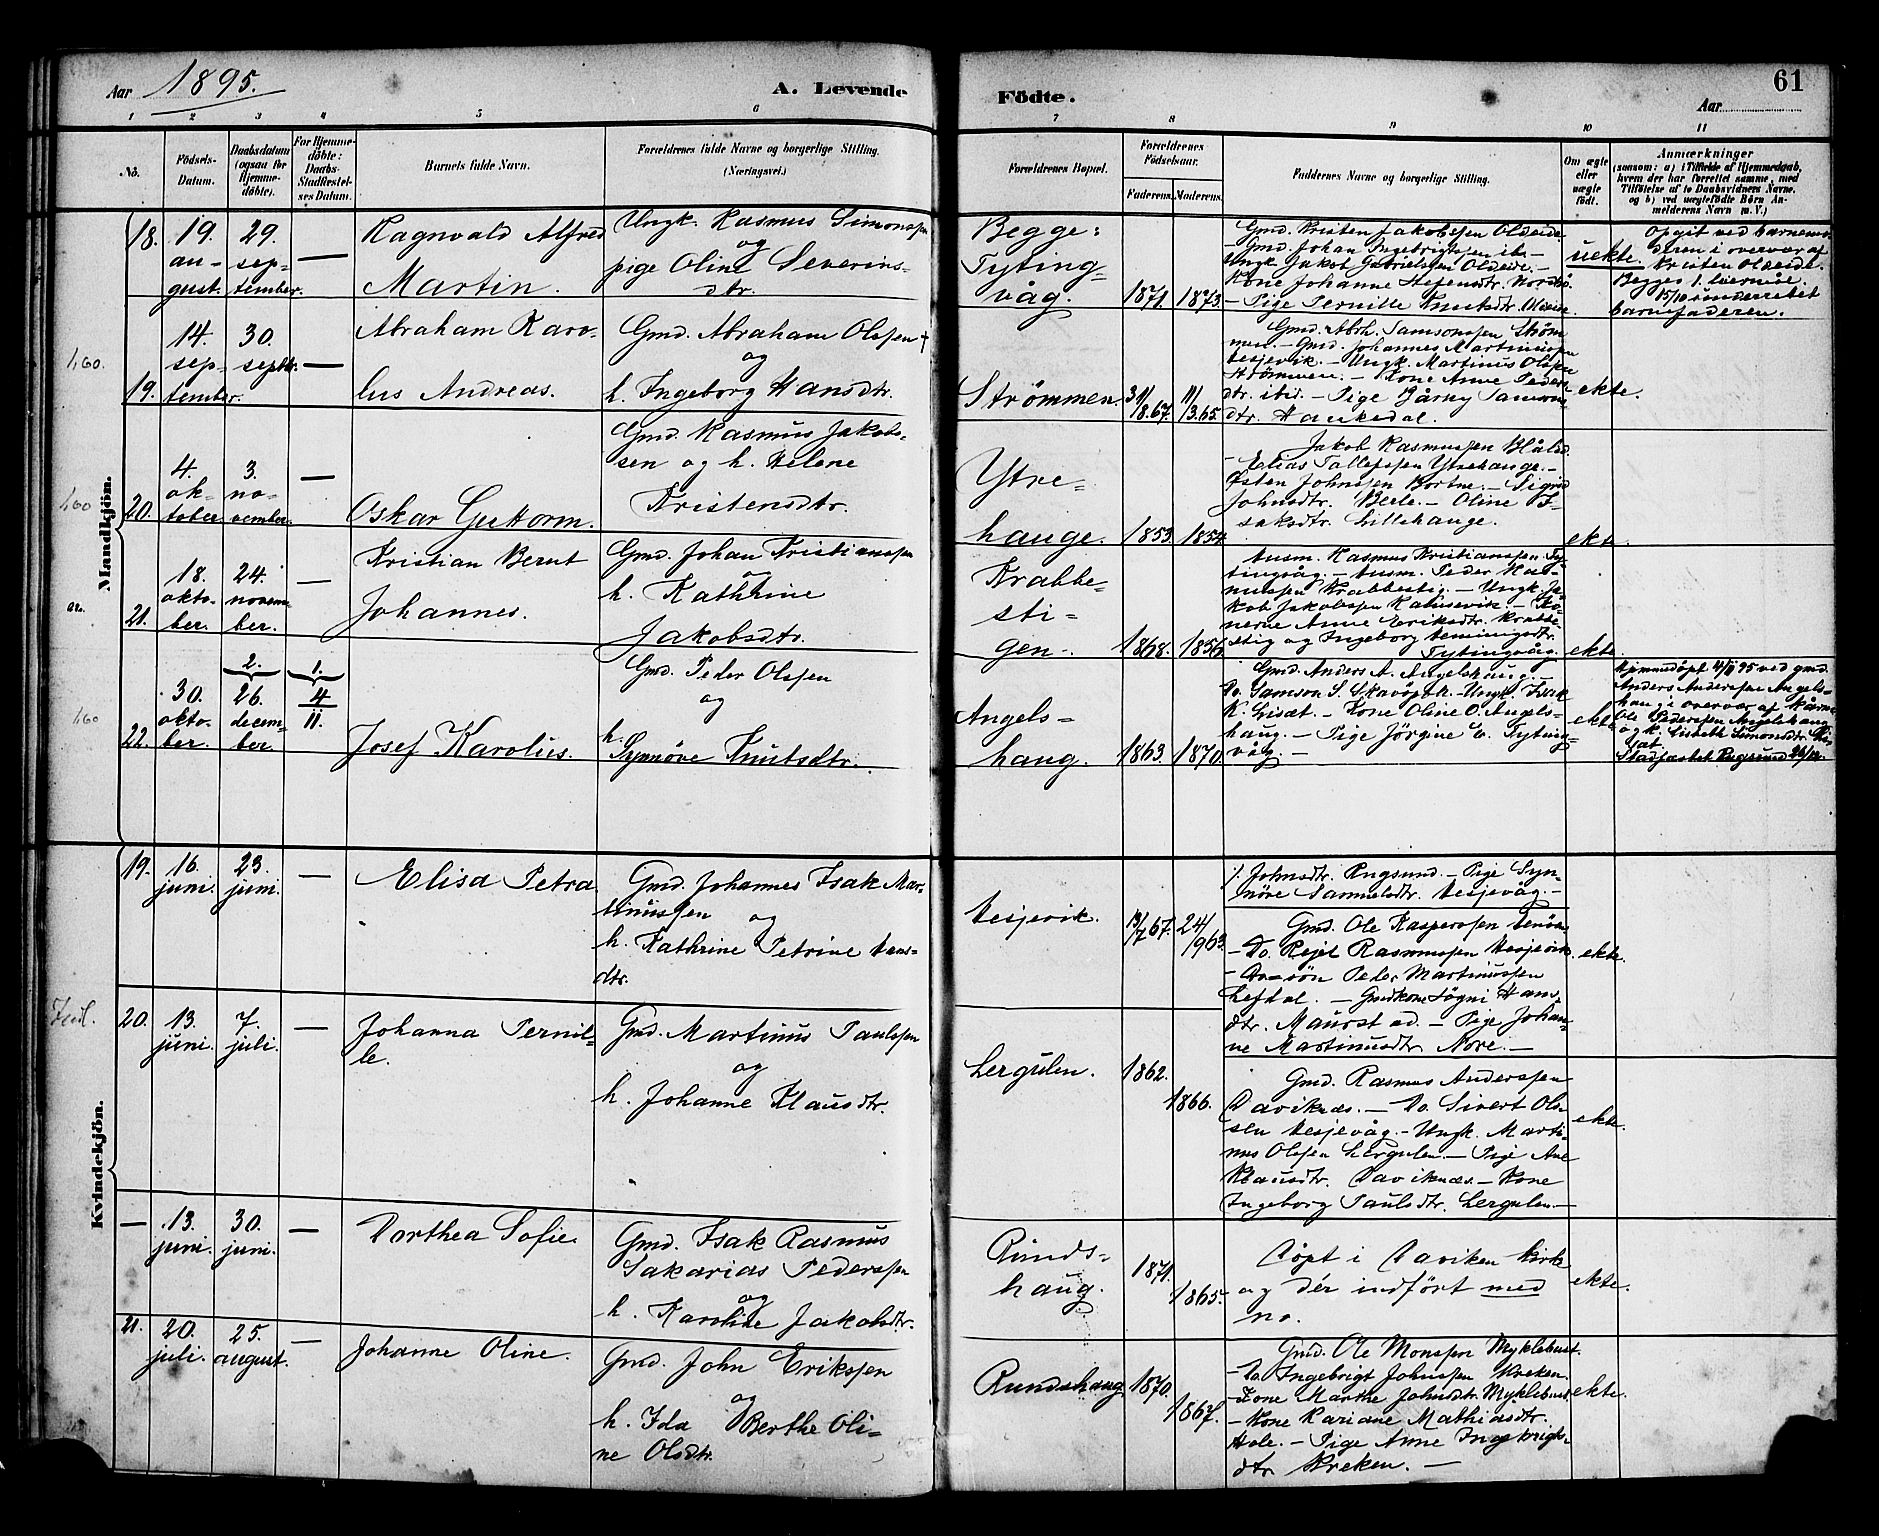 Aar 1895.
A. Levende
Födte.
61
Aar
1 2 3 4 5 6 7 8 9 10 11
No.
Födsels-
Datum.
Daabsdatum
(ogsaa for
Hjemme-
döbte).
For Hjemme-
döbte:
Daabs-
Stadfæstel-
ses Datum.
Barnets fulde Navn.
Forældrenes fulde Navne og borgerlige Stilling.
(Næringsvei.)
Forældrenes Bopæl.
Forældrenes
Födselsaar.
Faderens. Moderens.
Faddernes Navne og borgerlige Stilling.
Om ægte
eller
uægte
födt.
Anmærkninger
(saasom: a) i Tilfælde af Hjemmedaab,
hvem der har forrettet samme, med
Tilföielse af to Daabsvidners Navne,
og b) ved uægtefödte Börn An-
melderens Navn m. V.)
Mandkjön.
18.
19.
au-
gust.
29.
sep-
tember.
—
Ragnvald Alfred
Martin.
Ungk. Rasmus Simonssen
og
pige Oline Severins-
dtr.
Begge:
Tyting-
våg.
1871 1873.
Gmd. Kristen Jakobssen Oldeide.
- Gmd. Johan Ingebrigtsen ib. -
Ungk Jakob Gabrielssen Oldeide. -
Kone Johanne Stefensdtr. Nordbö
- Pige Pernille Knutsdtr. Oldeide.
uekte.
Opgit ved barnemo-
deren i overvær af
Kristen Oldeide.
Begges 1. leiermål.
15/10 underrettet
barnefaderen.
19.
14.
sep-
tember.
30.
septbr.
—
Abraham Karo-
lus Andreas.
Gmd. Abraham Olssen
og
h. Ingeborg Hansdtr.
Strömmen.
31/8.67. 11/3.65.
Gmd. Abrh. Samsonssen Ström-
men. - Gmd. Johannes Martinussen
Vesjevik. - Ungk. Martinus Olssen
Strömmen. - Kone Anne Peders-
dtr. ibid. - Pige Bårny Samsons-
dtr. Haukedal.
ekte.
20.
4.
ok-
tober
3.
no-
vember.
—
Oskar Guttorm.
Gmd. Rasmus Jakobs-
sen og h. Helene
Kristensdtr.
Ytre-
hauge.
1853. 1854.
Jakob Rasmussen Blålid
- Elias Tollefssen Ytrehauge. -
Östen Johnssen Bortne. - Sigrid
Johnsdtr. Berle. - Oline I-
saksdtr. Lillehauge.
ekte.
21.
18.
okto-
ber.
24.
novem-
ber.
—
Kristian Bernt
Johannes.
Gmd. Johan Kristianssen
og
h. Kathrine
Jakobsdtr.
Krabbe-
sti-
gen.
1868. 1856.
Husm. Rasmus Kristianssen Ty-
tingvåg. - Husm. Peder Ras-
mussen Krabbestig. - Ungk. Ja-
kob Jakobssen Kalvesvik. - Ko-
nerne Anne Eriksdtr. Krabbe-
stig og Ingeborg Hemmingsdtr.
Tytingvåg.
ekte.
22.
30.
okto-
ber.
2.
26.
decem-
ber
1.
4
11.
Josef Karolus.
Gmd. Peder Olssen
og
h.
Synnöve Knutsdtr.
Angels-
haug.
1863. 1870.
Gmd. Anders A. Angelshaug. -
Do. Samson S. Skavöpol. - Ungk. Isak
K. Lisæt. - Kone Oline O. Angels-
haug. - Pige Jörgine E. Tyting-
våg. -
ekte
Hjemmedöpt 4/11 95 ved gmd.
Anders Anderssen Angels-
haug i overvær af kårm.
Ole Pederssen Angelshaug
og k. Lisbeth Simonsdtr. Li-
sæt.
Stadfæstet Rugsund 26/12.
Kvindekjön.
19.
16.
juni.
23.
juni.
—
Elisa Petra
Gmd. Johannes Isak Mar-
tinussen og
h. Kathrine Petrine Hans-
dtr.
Vesjevik.
13/7 67. 24/9 63.
Johnsdtr. Rugsund. - Pige Syn-
növe Samuelsdtr. Vesjevåg. -
Gmd. Ole Kasperssen Henöen
- Do. Rejel Rasmussen Vesjevik.
- Peder Martinussen
Leftal. - Gmdkone Sögni Hans-
dtr. Maurstad. - Pige Johan-
ne Martinusdtr. Nore. -
ekte.
20.
13.
juni.
7.
juli.
—
Johanna Pernil-
le.
Gmd. Martinus Paulssen
og
h. Johanne Klausdtr.
Lergulen.
1862.
1866.
Gmd. Rasmus Anderssen
Daviknæs. - Do. Sivert Ols-
sen Vesjevåg. - Ungk. Marti-
nus Olssen Lergulen. - Pige Ane
Klausdtr. Daviknæs. - Kone
Ingeborg Paulsdtr. Lergulen. -
ekte.
—
13.
juni.
30.
juni.
—
Dorthea Sofie
Gmd. Isak Rasmus
Sakarias Pederssen
og
h. Karoline Jakobsdtr.
Runds-
haug.
1871.
1865.
Döpt i Daviken kirke
og dér indfört med
no.
ekte.
21.
20.
juli.
25.
august.
—
Johanne Oline.
Gmd. John Erikssen
og
h. Ida Berthe Oli-
ne Olsdtr.
Rundshaug
1870.
1867.
Gmd. Ole Monssen Myklebust.
- Do. Ingebrigt Johnssen Kreken.
- Kone Marthe Johnsdtr. Myklebust
- Kone Kariane Mathiasdtr.
Hole. - Pige Anne Ingebrigts-
dtr Kreken. -
ekte.